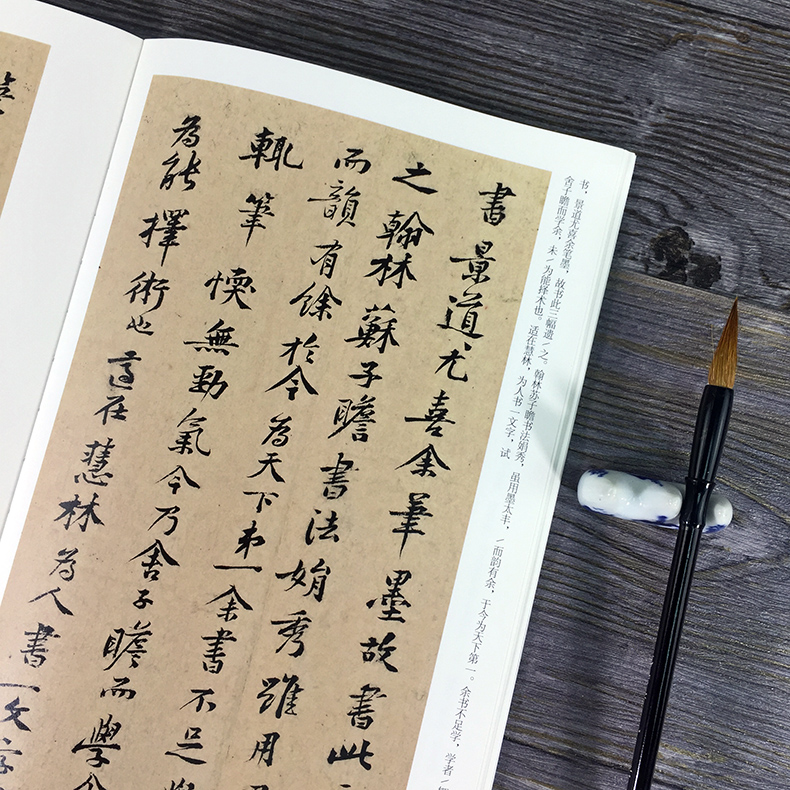 书，景道尤喜余笔墨，故书此三幅遗/之。翰林苏子瞻书法娟秀，虽用墨太丰，/而韵有余，于今为天下第一。余书不足学，学者/
舍子瞻而学余，未/为能择术也。适在慧林，为人书一文字，试
書景道尤喜余筆墨故書此
之翰林蘇子瞻書法娟秀雖用
而韻有餘於今為天下第一余書不足
輒筆愞無勁氣今乃舍子瞻而學余
為能擇術也適在慧林為人書一文字